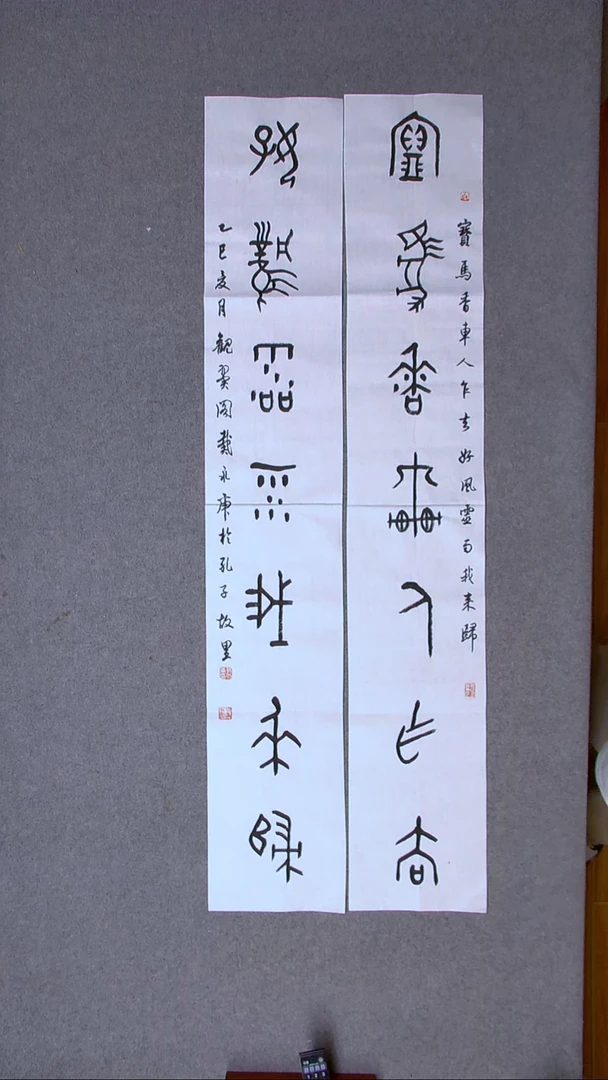 寶馬香車人乍去好風靈雨我來歸
寶馬香車人乍去
好風靈雨我來歸
乙巳夏月觀翼閣戴永於孔子故里